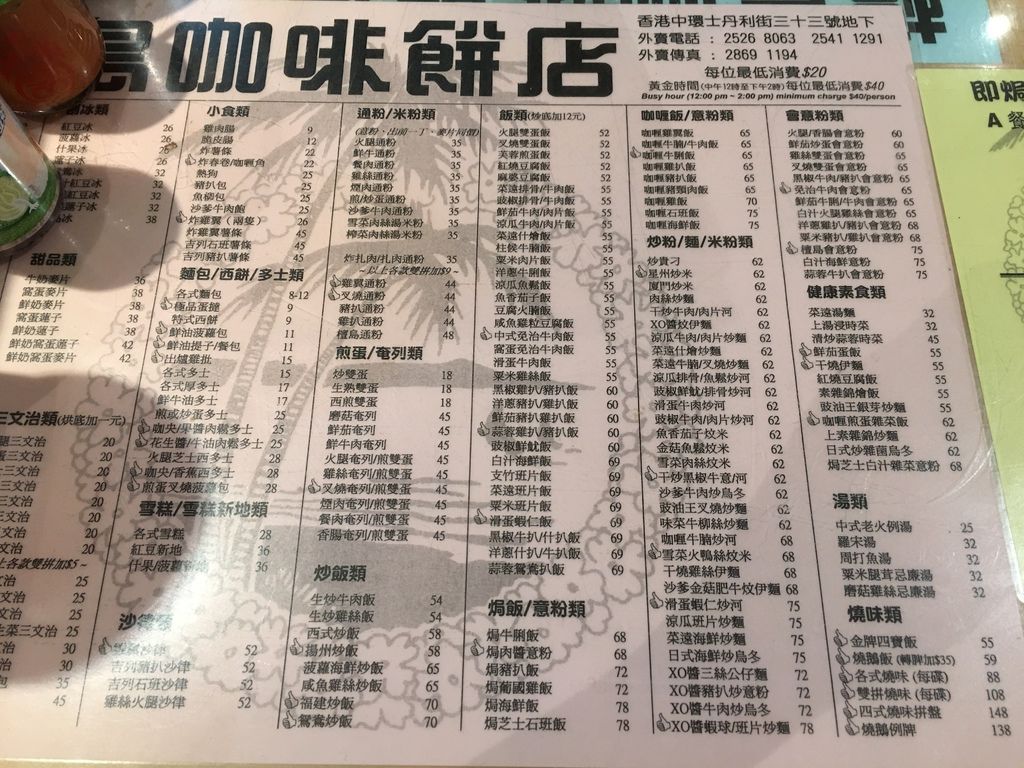 咖啡餅店
香港中環士丹利街三十三號地下
外賣電話：2526 8063 2541 1291
外賣傳真：2869 1194
每位最低消費$20
黃金時間(中午12時至下午2時)每位最低消費$40
Busy hour (12:00 pm ~ 2:00 pm) minimum charge $40/person
冰類
紅豆冰 26
菠蘿冰 26
什果冰 26
蓮子冰 32
紅豆冰 32
38
甜品類
牛奶麥片 36
窩蛋麥片 38
鮮奶麥片 38
窩蛋蓮子 38
鮮奶蓮子 42
鮮奶窩蛋麥片 42
三文治類(烘底加一元)
三文治 20
三文治 20
三文治 20
三文治 20
20
20
20
各款雙拼加$5~
25
25
25
生菜三文治 25
30
30
35
45
小食類
雞肉腸 9
脆皮腸 12
炸薯條 22
炸春卷/咖喱角 22
熱狗 25
豬扒包 25
魚柳包 25
沙爹牛肉飽 25
炸雞翼（兩隻） 26
炸雞翼薯條 45
吉列石班薯條 45
吉列豬扒薯條 45
麵包/西餅/多士類
各式麵包 8-12
極品蛋撻 9
特式西餅 9
鮮油菠蘿包 11
鮮油提子/餐包 11
出爐雞批 15
各式多士 15
各式厚多士 17
鮮牛油多士 17
煎或炒蛋多士 25
咖央/果醬肉鬆多士 25
花生醬/牛油肉鬆多士 25
火腿芝士西多士 28
咖央/香蕉西多士 28
煎蛋叉燒菠蘿包 28
雪糕/雪糕新地類
各式雪糕 25
紅豆新地 36
什果/菠蘿新地 36
沙律類
52
吉列豬扒沙律 52
吉列石班沙律 52
雞絲火腿沙律 52
通粉/米粉類
(意粉、出前一丁、麥片同價)
火腿通粉 35
鮮牛通粉 35
餐肉通粉 35
雞絲通粉 35
煙肉通粉 35
煎/炒蛋通粉 35
沙爹牛肉通粉 35
雪菜肉絲湯米粉 35
榨菜肉絲湯米粉 35
炸扎肉/扎肉通粉 35
~以上各款雙拼加$9~
雞翼通粉 44
叉燒通粉 44
豬扒通粉 44
雞扒通粉 44
檀島通粉 48
煎蛋/奄列類
炒雙蛋 18
生熟雙蛋 18
西煎雙蛋 18
磨菇奄列 45
鮮茄奄列 45
鮮牛肉奄列 45
火腿奄列/煎雙蛋 45
雞絲奄列/煎雙蛋 45
叉燒奄列/煎雙蛋 45
煙肉奄列/煎雙蛋 45
餐肉奄列/煎雙蛋 45
香腸奄列/煎雙蛋 45
炒飯類
生炒牛肉飯 54
生炒雞絲飯 54
西式炒飯 58
揚州炒飯 58
菠蘿海鮮炒飯 65
咸魚雞絲炒飯 65
福建炒飯 70
鴛鴦炒飯 70
飯類(炒底加12元)
火腿雙蛋飯 52
叉燒雙蛋飯 52
芙蓉煎蛋飯 52
紅燒豆腐飯 52
麻婆豆腐飯 52
菜遠排骨/牛肉飯 55
豉椒排骨/牛肉飯 55
鮮茄牛肉/肉片飯 55
涼瓜牛肉/肉片飯 55
菜遠什燴飯 55
柱侯牛腩飯 55
粟米肉片飯 55
洋蔥牛脷飯 55
涼瓜魚鬆飯 55
魚香茄子飯 55
豆腐火腩飯 55
咸魚雞粒豆腐飯 55
中式免治牛肉飯 55
窩蛋免治牛肉飯 55
滑蛋牛肉飯 55
粟米雞絲飯 55
黑椒雞扒/豬扒飯 60
洋蔥雞扒/豬扒飯 60
鮮茄豬扒/雞扒飯 60
蒜蓉雞扒/豬扒飯 60
豉椒鮮魷飯 60
白汁海鮮飯 69
支竹班片飯 69
菜遠班片飯 69
粟米班片飯 69
滑蛋蝦仁飯 69
黑椒牛扒/什扒飯 69
洋蔥什扒/牛扒飯 69
蒜蓉鴛鴦扒飯 69
焗飯/意粉類
焗牛脷飯 68
焗肉醬意粉 68
焗豬扒飯 72
焗葡國雞飯 72
焗海鮮飯 78
焗芝士石班飯 78
咖喱飯/意粉類
咖喱雞翼飯 65
咖喱牛腩/牛肉飯 65
咖喱牛脷飯 65
咖喱雞扒飯 65
咖喱豬扒飯 65
咖喱豬頸肉飯 65
咖喱雞飯 70
咖喱石班飯 75
咖喱海鮮飯 75
炒粉/麵/米粉類
炒貴刁 62
星州炒米 62
廈門炒米 62
肉絲炒麵 62
干炒牛肉/肉片河 62
XO醬炆伊麵 62
涼瓜牛肉/肉片炒麵 62
菜遠什燴炒麵 62
菜遠牛腩/叉燒炒麵 62
涼瓜排骨/魚鬆炒河 62
豉椒鮮魷/排骨炒河 62
豉椒牛肉/肉片炒河 62
滑蛋牛肉炒河 62
魚香茄子炆米 62
金菇魚鬆炆米 62
雪菜肉絲炆米 62
干炒黑椒牛意/河 62
沙爹牛肉炒烏冬 62
豉油王叉燒炒麵 62
味菜牛柳絲炒麵 62
咖喱牛腩炒河 68
雪菜火鴨絲炆米 68
干燒雞絲伊麵 68
沙爹金菇肥牛炆伊麵 68
滑蛋蝦仁炒河 75
涼瓜班片炒麵 75
菜遠海鮮炒麵 75
日式海鮮炒烏冬 75
XO醬三絲公仔麵 72
XO醬豬扒炒意粉 72
XO醬牛肉炒烏冬 72
XO醬蝦球/班片炒麵 78
會意粉類
火腿/香腸會意粉 60
鮮茄炒蛋會意粉 60
雞絲雙蛋會意粉 65
叉燒雙蛋會意粉 65
黑椒牛肉/豬扒會意粉 65
免治牛肉會意粉 65
鮮茄牛脷/牛肉會意粉 65
白汁火腿雞絲會意粉 65
洋蔥雞扒/豬扒會意粉 65
粟米豬扒/雞扒會意粉 65
檀島會意粉 75
白汁海鮮意粉 75
蒜蓉牛扒會意粉 75
健康素食類
菜遠湯麵 32
上湯浸時菜 32
清炒蒜蓉時菜 45
鮮茄蛋飯 55
干燒伊麵 55
紅燒豆腐飯 55
素雜錦燴飯 55
豉油王銀芽炒麵 55
咖喱煎蛋雜菜飯 55
上素雜錦炒麵 60
日式炒雜菌烏冬 60
焗芝士白汁雜菜意粉 68
湯類
中式老火例湯 25
羅宋湯 32
周打魚湯 32
粟米腿茸忌廉湯 32
磨菇雞絲忌廉湯 32
燒味類
金牌四寶飯 55
燒鵝飯（轉脾加$35） 59
各式燒味 (每碟) 88
雙拼燒味 (每碟) 108
四式燒味拼盤 148
燒鵝例牌 138
即焗
A 餐